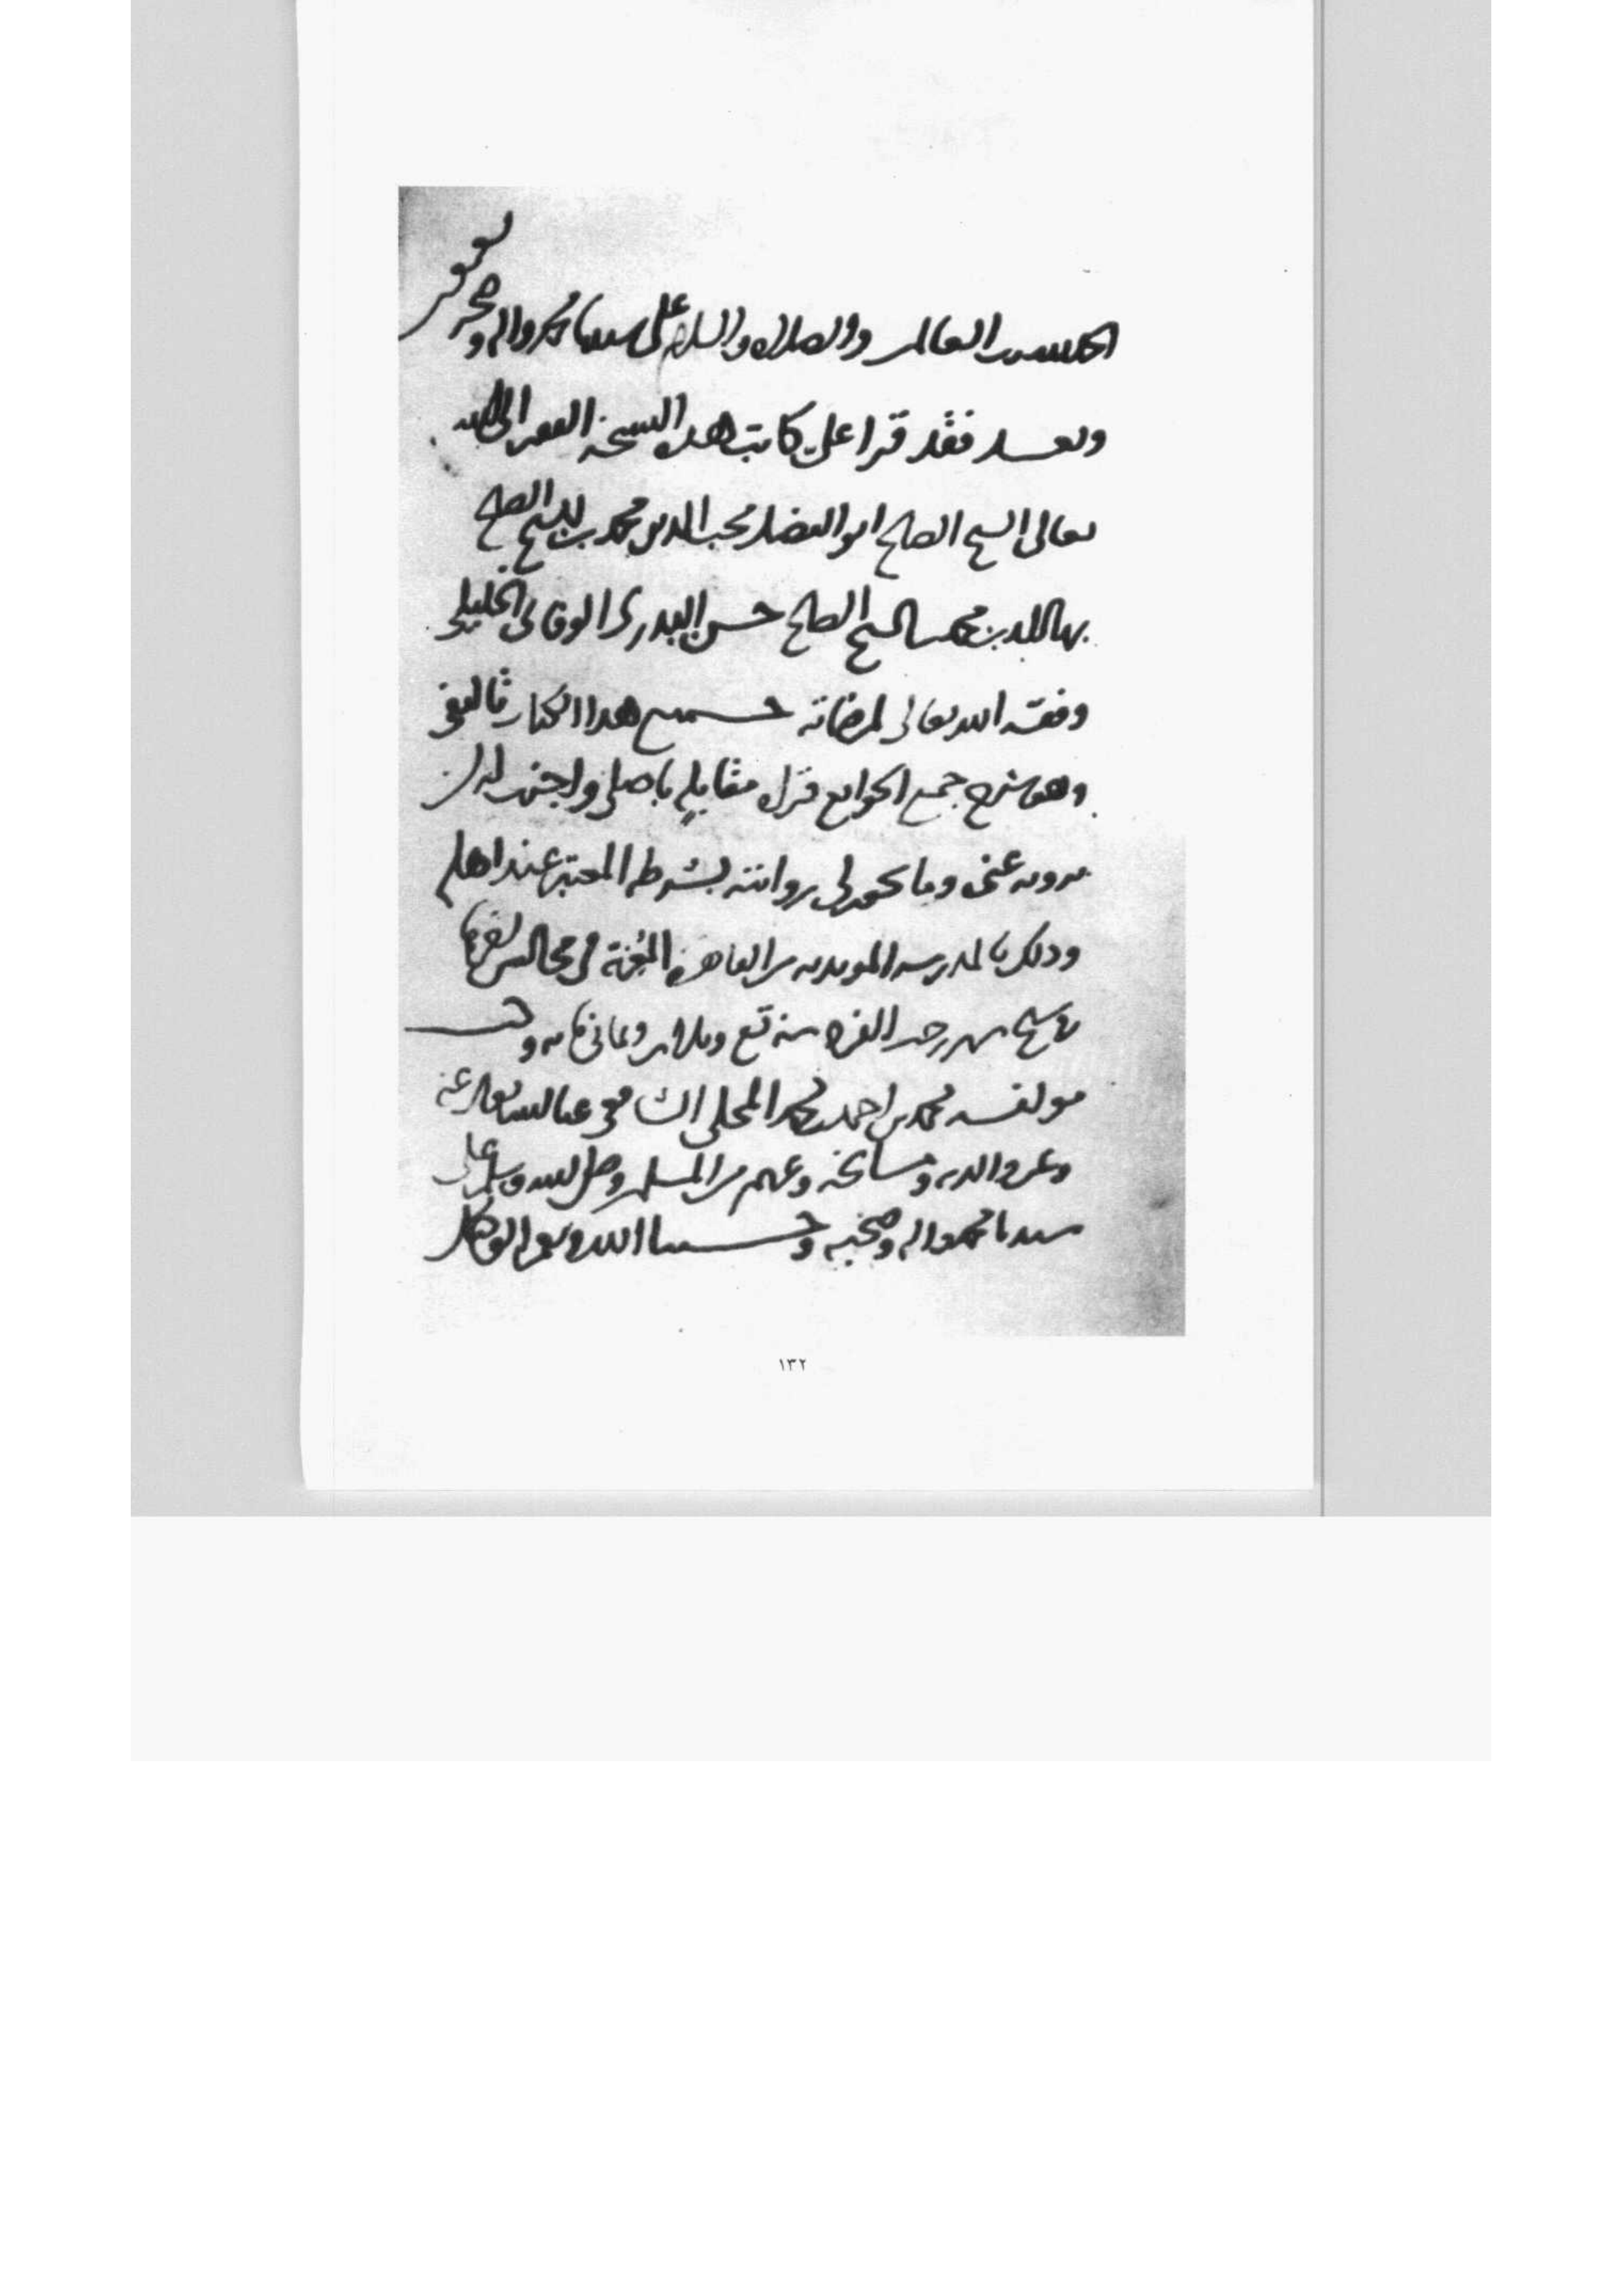 الحمد لله رب العالمين والصلاة والسلام على سيدنا محمد واله وصحبه
وبعد فقد قرا علي كاتب هذه النسخة الفقير الى الله
تعالى الشيخ الصالح ابو الفضل محب الدين محمد بن الشيخ الصالح
بها الدين محمد بن الشيخ الصالح حسن البدري الوفائي الخليلي
وفقه الله تعالى لمرضاته جميع هذا الكتاب تاليفي
وهو شرح جمع الجوامع قراة مقابلة باصلي واجزت له ان
يرويه عني وما يجوز لي روايته بشرطه المعتبر عند اهله
وذلك بالمدرسة المويدية من القاهرة المعزية في مجالس اخرها
تاسع شهر رجب الفرد سنة تسع وثلاثين وثمانمايه وكتب
مولفه محمد بن احمد بن محمد المحلي الشافعي عفا الله تعالى عنه
وعن والديه ومشايخه وعن المسلمين وصلى الله وسلم على
سيدنا محمد واله وصحبه وحسبنا الله ونعم الوكيل
١٣٢